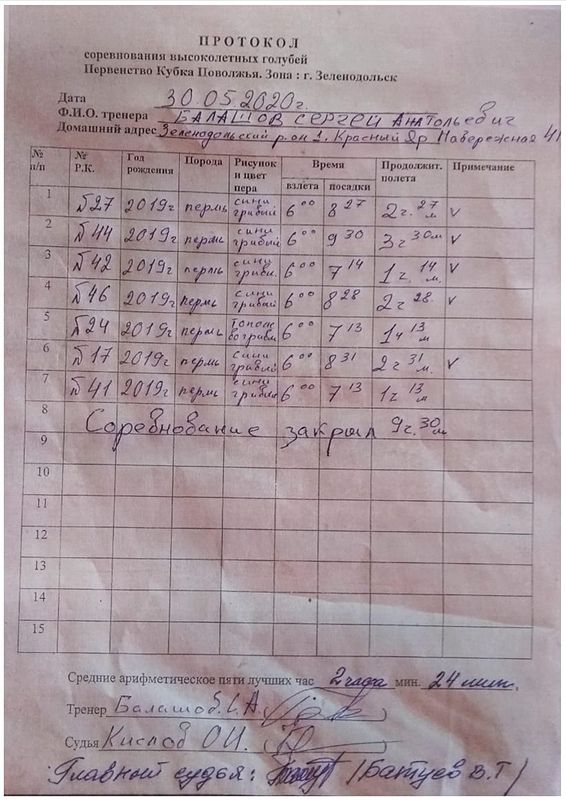 ПРОТОКОЛ
соревнования высоколетных голубей
Первенство Кубка Поволжья. Зона : г. Зеленодольск
Дата 30.05.2020г.
Ф.И.О. тренера БАЛАШОВ СЕРГЕЙ АНАТОЛЬЕВИЧ
Домашний адрес Зеленодольский р.он 1. Красный Яр Навережная 41
№ п/п № Р.К. Год рождения Порода Рисунок и цвет пера Время взлета посадки Продолжит. полета Примечание
1 №27 2019г пермь сини гривый 6 00 8 27 2ч. 27 м v
2 №44 2019г пермь сини гривый 6 00 9 30 3ч 30м v
3 №42 2019г пермь сини гривы. 6 00 7 14 1ч. 14 м. v
4 №46 2019г пермь сини гривый 6 00 8 28 2ч 28. v
5 №24 2019г пермь 6 00 7 13 1ч 13 м
6 №17 2019г пермь сини гривый 6 00 8 31 2ч 31 м. v
7 №41 2019г пермь сини гривый 6 00 7 13 1ч 13 м
8 Соревнование закрыл 9ч. 30м
9
10
11
12
13
14
15
Средние арифметическое пяти лучших час 2 часа мин. 24 мин.
Тренер Балашов.С.А.
Судья Кислов О.И.
Главный судья: /Батуев В.Т/